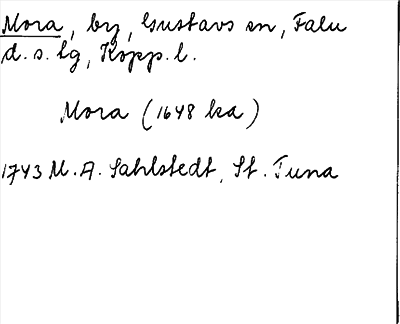 Mora, by, Gustavs sn, Falu
d.s. lg, Kopp. l.
Mora (1648 ka)
1743 M. A. Sahlstedt, St. Tuna